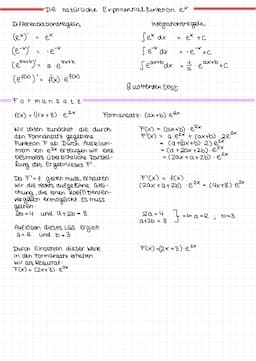 Die natürliche Exponentialfunktion eˣ
Differentiationsregeln
Integrationsregeln
(eˣ)' = eˣ
∫eˣ dx = eˣ + c
(e⁻ˣ)' = -e⁻ˣ
∫e⁻ˣ dx = -e⁻ˣ + c
(eᵃˣ⁺ᵇ)' = a eᵃˣ⁺ᵇ
∫eᵃˣ⁺ᵇ dx = 1/a eᵃˣ⁺ᵇ + c
(e^f(x))' = f'(x) · e^f(x)
Formansatz
f(x) = (4x+8) · e²ˣ
Formansatz: (ax+b) e²ˣ
Wir leiten zunächst die durch
den Formansatz gegebene
Funktion F ab. Durch Ausklam-
mern von e²ˣ erzeugen wir eine
besonders übersichtliche Darstel-
lung des Ergebnisses F'.
F(x) = (ax+b) · e²ˣ
F'(x) = a · e²ˣ + (ax+b) · 2e²ˣ
= (a+(ax+b) · 2) e²ˣ
= (a+2ax+2b) · e²ˣ
= (2ax+a+2b) · e²ˣ
Da F' = f gelten muss, erhalten
wir die rechts aufgeführte Glei-
chung, die einen Koeffizienten-
vergleich ermöglicht. Es muss
gelten:
2a = 4 und a+2b = 8
F'(x) = f(x)
(2ax+a+2b) · e²ˣ = (4x+8) e²ˣ
2a = 4
a+2b = 8 } => a = 2, b = 3
Auflösen dieses LGS ergibt
a = 2 und b = 3
Durch Einsetzen dieser Werte
in den Formansatz erhalten
wir als Resultat:
F(x) = (2x+3) · e²ˣ
F(x) = (2x+3) · e²ˣ